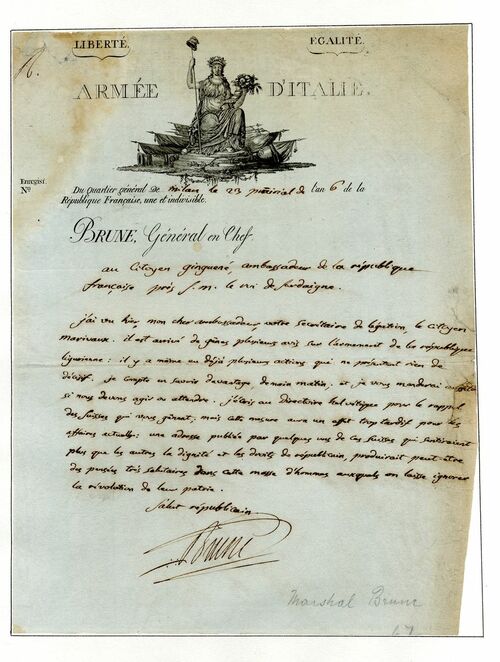 LIBERTÉ. EGALITÉ.
ARMÉE D'ITALIE.
Enregist.
N.º
Du Quartier général de milan le 23 prairial de l'an 6 de la
République Française, une et indivisible.
BRUNE, Général en Chef.
au Citoyen ginguené, ambassadeur de la république
française près s. m. le roi de sardaigne.
j'ai vu hier, mon cher ambassadeur, votre secrétaire de légation, le citoyen
marivaux. il est arrivé de gênes plusieurs avis sur l'armement de la république
ligurienne: il y a même eu déjà plusieurs actions qui ne présentent rien de
décisif. je compte en savoir davantage demain matin, et je vous manderai
si nous devons agir ou attendre. j'écris au Directoire helvétique pour le rappel
des suisses qui vous gênent; mais cette mesure aura un effet trop tardif pour les
affaires actuelles: une adresse publiée par quelques uns de ces suisses qui sentiraient
plus que les autres la dignité et les droits de républicain, produirait peut-être
des pensées très salutaires dans cette masse d'hommes auxquels on laisse ignorer
la révolution de leur patrie.
Salut républicain.
Brune
Marshal Brune
67